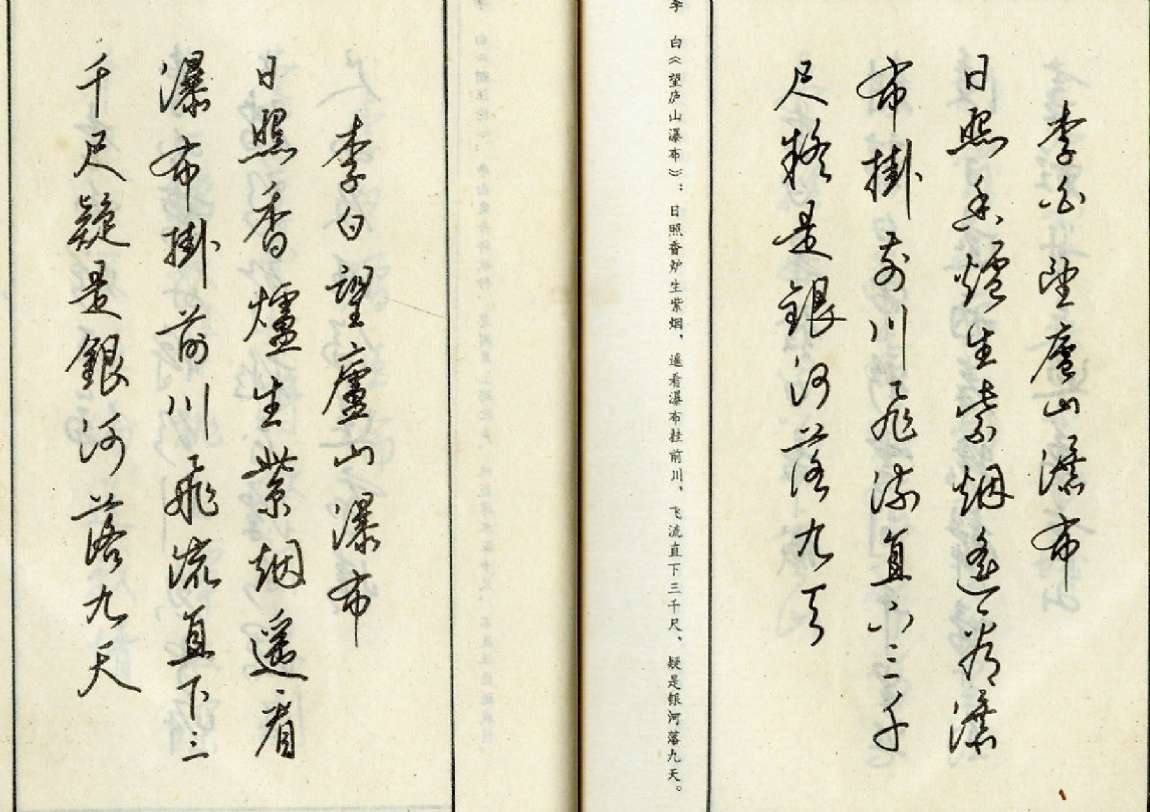 李白望廬山瀑布
日照香爐生紫烟遙看瀑
布掛前川飛流直下三千
尺疑是銀河落九天
李 白《望庐山瀑布》：日照香炉生紫烟，遥看瀑布挂前川，飞流直下三千尺，疑是银河落九天。
李白望廬山瀑布
日照香爐生紫烟遙看
瀑布掛前川飛流直下三
千尺疑是銀河落九天